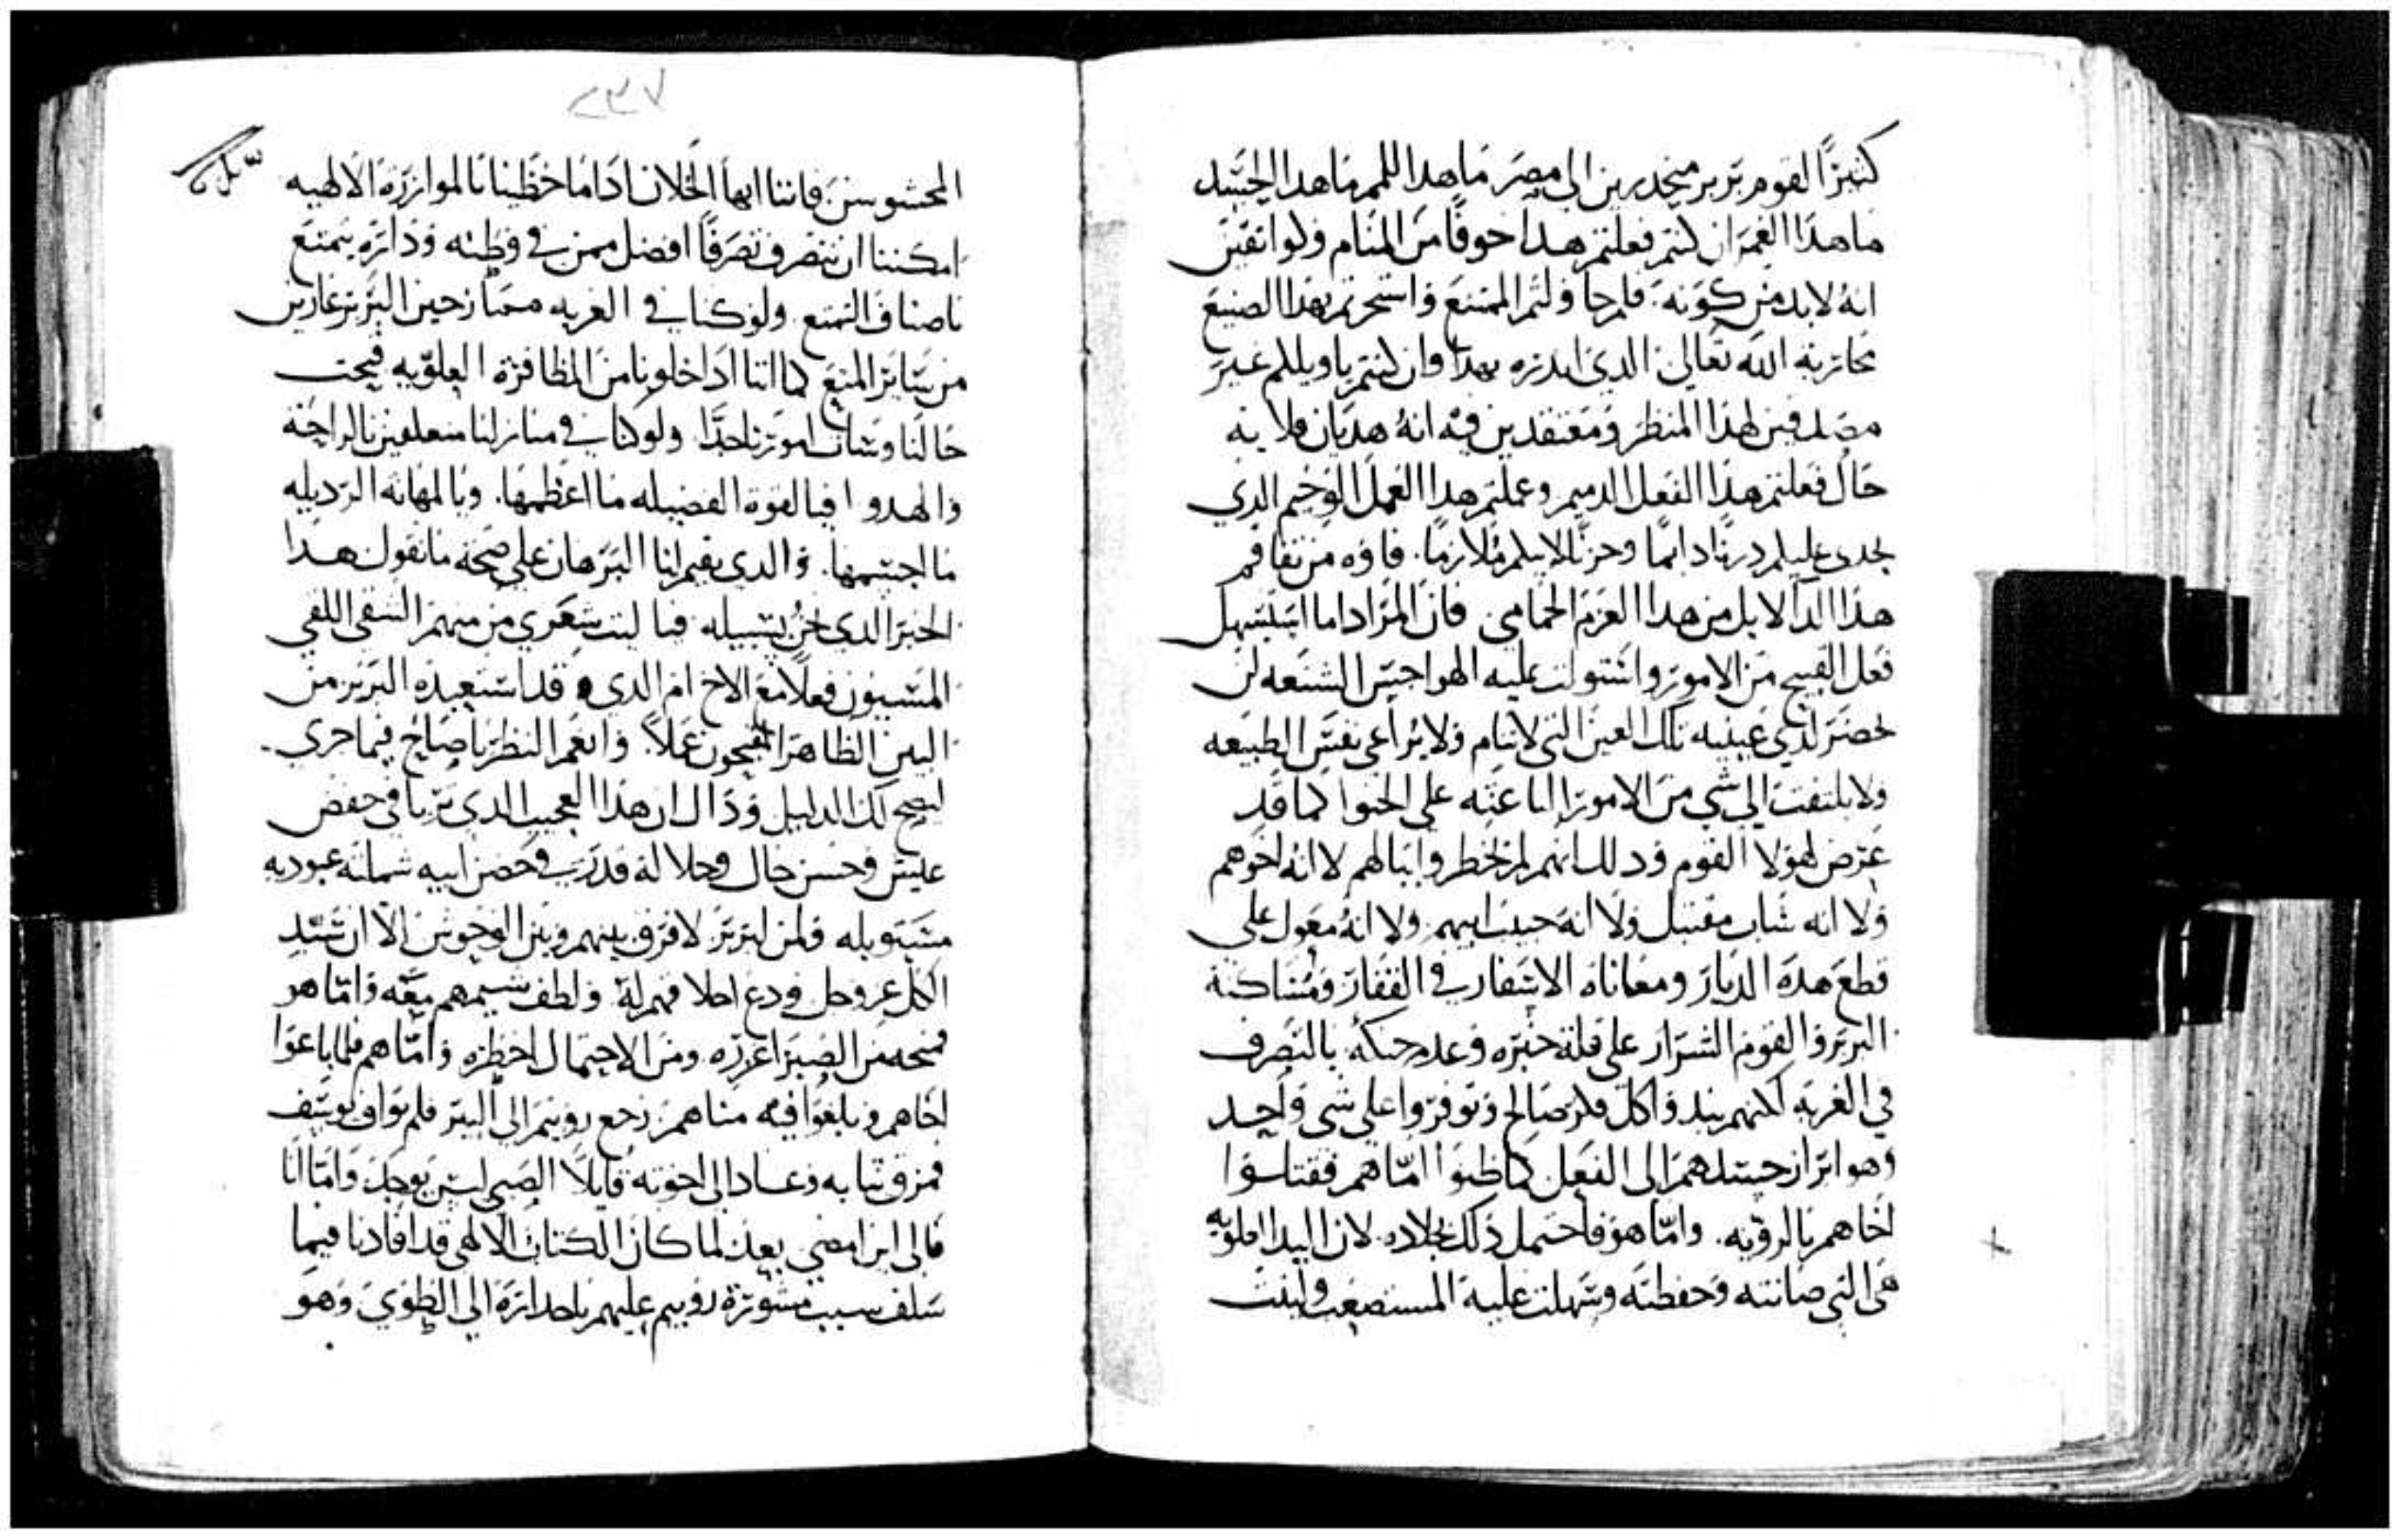 كنيزًا لقوم بربر منحدرين الى مصر ما هدا اللمم ما هدا الحسد
ما هدا الغمر ان كنتم فعلتم هدا خوفًا من المنام ولوا تقين
انه لابد من كونه. فلم حاولتم الممتنع واستحرتم بهدا الصنيع
محاربة الله تعالى الدي اندره بهدا وان كنتم ياويلكم غير
مصدقين لهذا المنظر ومعتقدين فيه انه هديان فلاية
حال فعلتم هذا الفعل الدميم وعملتم هدا العمل الوخيم الدي
يجدي عليكم درنًا دايمًا وحزنًا لايلم ملازمًا. فاوه من تفاقم
هذا الدآ لابل من هدا العزم الحمامي فان المرا اداما استسهل
فعل القبيح من الامور واستولت عليه الهواجس الشنعه لن
يحضر لدي عينيه تلك العين التي لاتنام ولا يراعي نفس الطبيعه
ولا يلتفت الى شي من الامور الباعثه على الحنوا كما قد
عرض لهولا القوم ودلك انهم لم يخطر وابيالهم لا انه اخوهم
ولا انه شاب مقتبل ولا انه حبيب ابيهم ولا انه معول على
قطع هده الديار ومعاناه الاسفار في القفار ومساكنة
البربر والقوم الشرار على قلة خبره وعدم حنكه بالتصرف
في الغربه لكنهم نبدوا كل فكر صالح وتوفروا على شي واحد
وهو ابراز حسدهم الى الفعل كما ظنوا امّا هم فقتلوا
اخاهم بالرويه. وامّا هو فاحتمل ذلك بجلاده لان اليد العلويه
هي التي صانته وحفظته وسهلت عليه المستصعب ولينت
٢٣٧
المحشوسن فاننا ايها الخلان اداما حظينا بالموازرة الالهيه
امكننا ان نتصرف تصرفًا افضل ممن في وطنه وداره يتمتع
باصناف التمتع ولو كنا في الغربه ممازحين البربر عارين
من ساير المنع كما اننا ادا خلونا من المظافرة العلويه قبحت
حالنا وشات امورنا جدًّا ولو كنا في منازلنا متعلقين بالراحة
والهدوا فيا لقوة الفضيله ما اعظمها. ويا لمهانه الرديله
ما اجسمها. والدي يقيم لنا البرهان على صحة ما نقول هدا
الخبر الدي نحن بسبيله فيا ليت شعري من منهم الشقي اللقي
المسيون فعلاً مع الاخ ام الدي قد استعبده البربر من
البين الظاهر المقبحون عملاً. وانعم النظر ياصاح فيما جري
ليصح لك الدليل وذاك ان هذا العجيب الدي تربا في خفض
عيش وحسن حال وجلالة قدر في حضن ابيه شملته عبوديه
مستوبله ولمن لبربر لا فرق بينهم وبين الوحوش الا ان سيد
الكل عز وجل ودع اخلا فهم له ولطف شيمهم معه وامّا هو
فمنحه من الصبر اغزره ومن الاحتمال اخطره وامّا هم فلما باعوا
اخاهم وبلغوا فيه مناهم. رجع روبيم الى البير فلم يواف يوسف
فمزق ثيابه وعاد الى اخوته قايلاً الصبي ليس يوجد وامّا انا
فالى اين امضي بعد لما كان الكتاب الالهي قد افادنا فيما
سلف سبب مشورة روبيم عليهم باحداره الي الطوي وهو